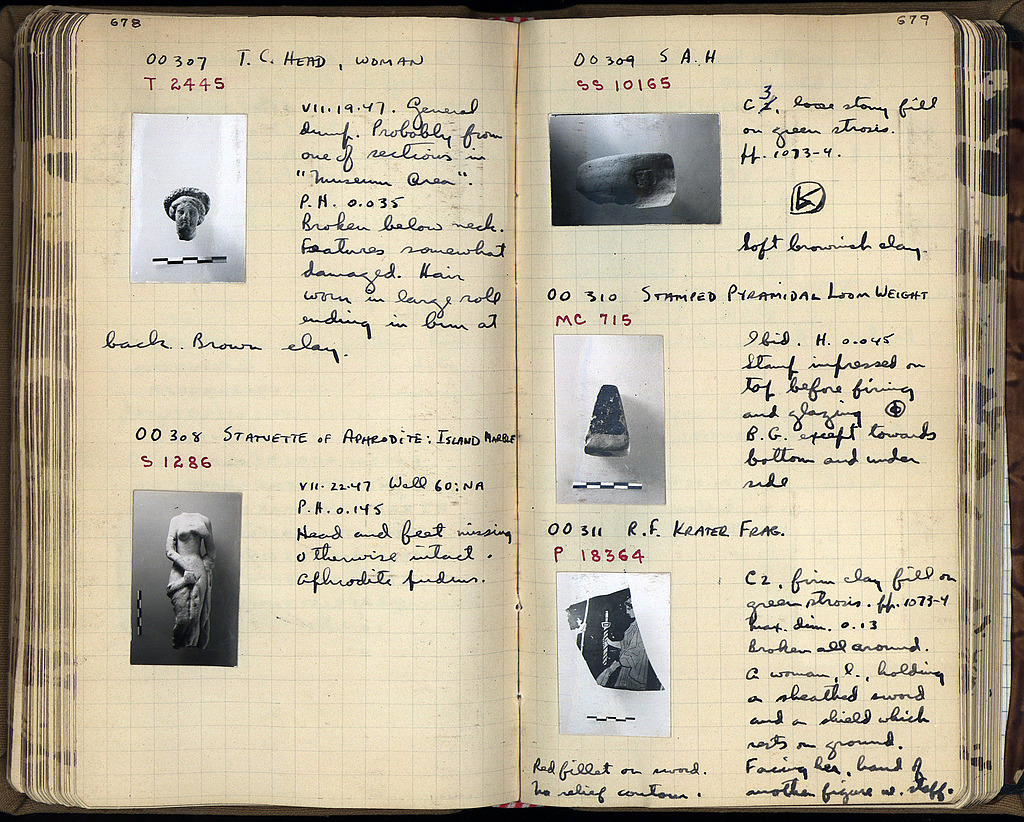 678
OO 307 T. C. HEAD, WOMAN
T 2445
VII.19.47. General
dump. Probably from
one of sections in
"Museum Area".
P.H. 0.035
Broken below neck.
Features somewhat
damaged. Hair
worn in large roll
ending in bun at
back. Brown clay.
OO 308 STATUETTE OF APHRODITE: ISLAND MARBLE
S 1286
VII.22.47 Well 60:NA
P.H. 0.145
Head and feet missing
otherwise intact.
Aphrodite pudens.
679
OO 309 S A H
SS 10165
C 3, loose stony fill
on green strosis.
pp. 1073-4.
Soft brownish clay.
OO 310 STAMPED PYRAMIDAL LOOM WEIGHT
MC 715
Ibid. H. 0.045
Stamp impressed on
top before firing
and glazing
B.G. except towards
bottom and under
side
OO 311 R.F. KRATER FRAG.
P 18364
C2, firm clay fill on
green strosis. pp. 1073-4
Max. dim. 0.13
Broken all around.
A woman, l., holding
a sheathed sword
and a shield which
rests on ground.
Facing her, hand of
another figure w. staff.
Red fillet on sword.
No relief contour.